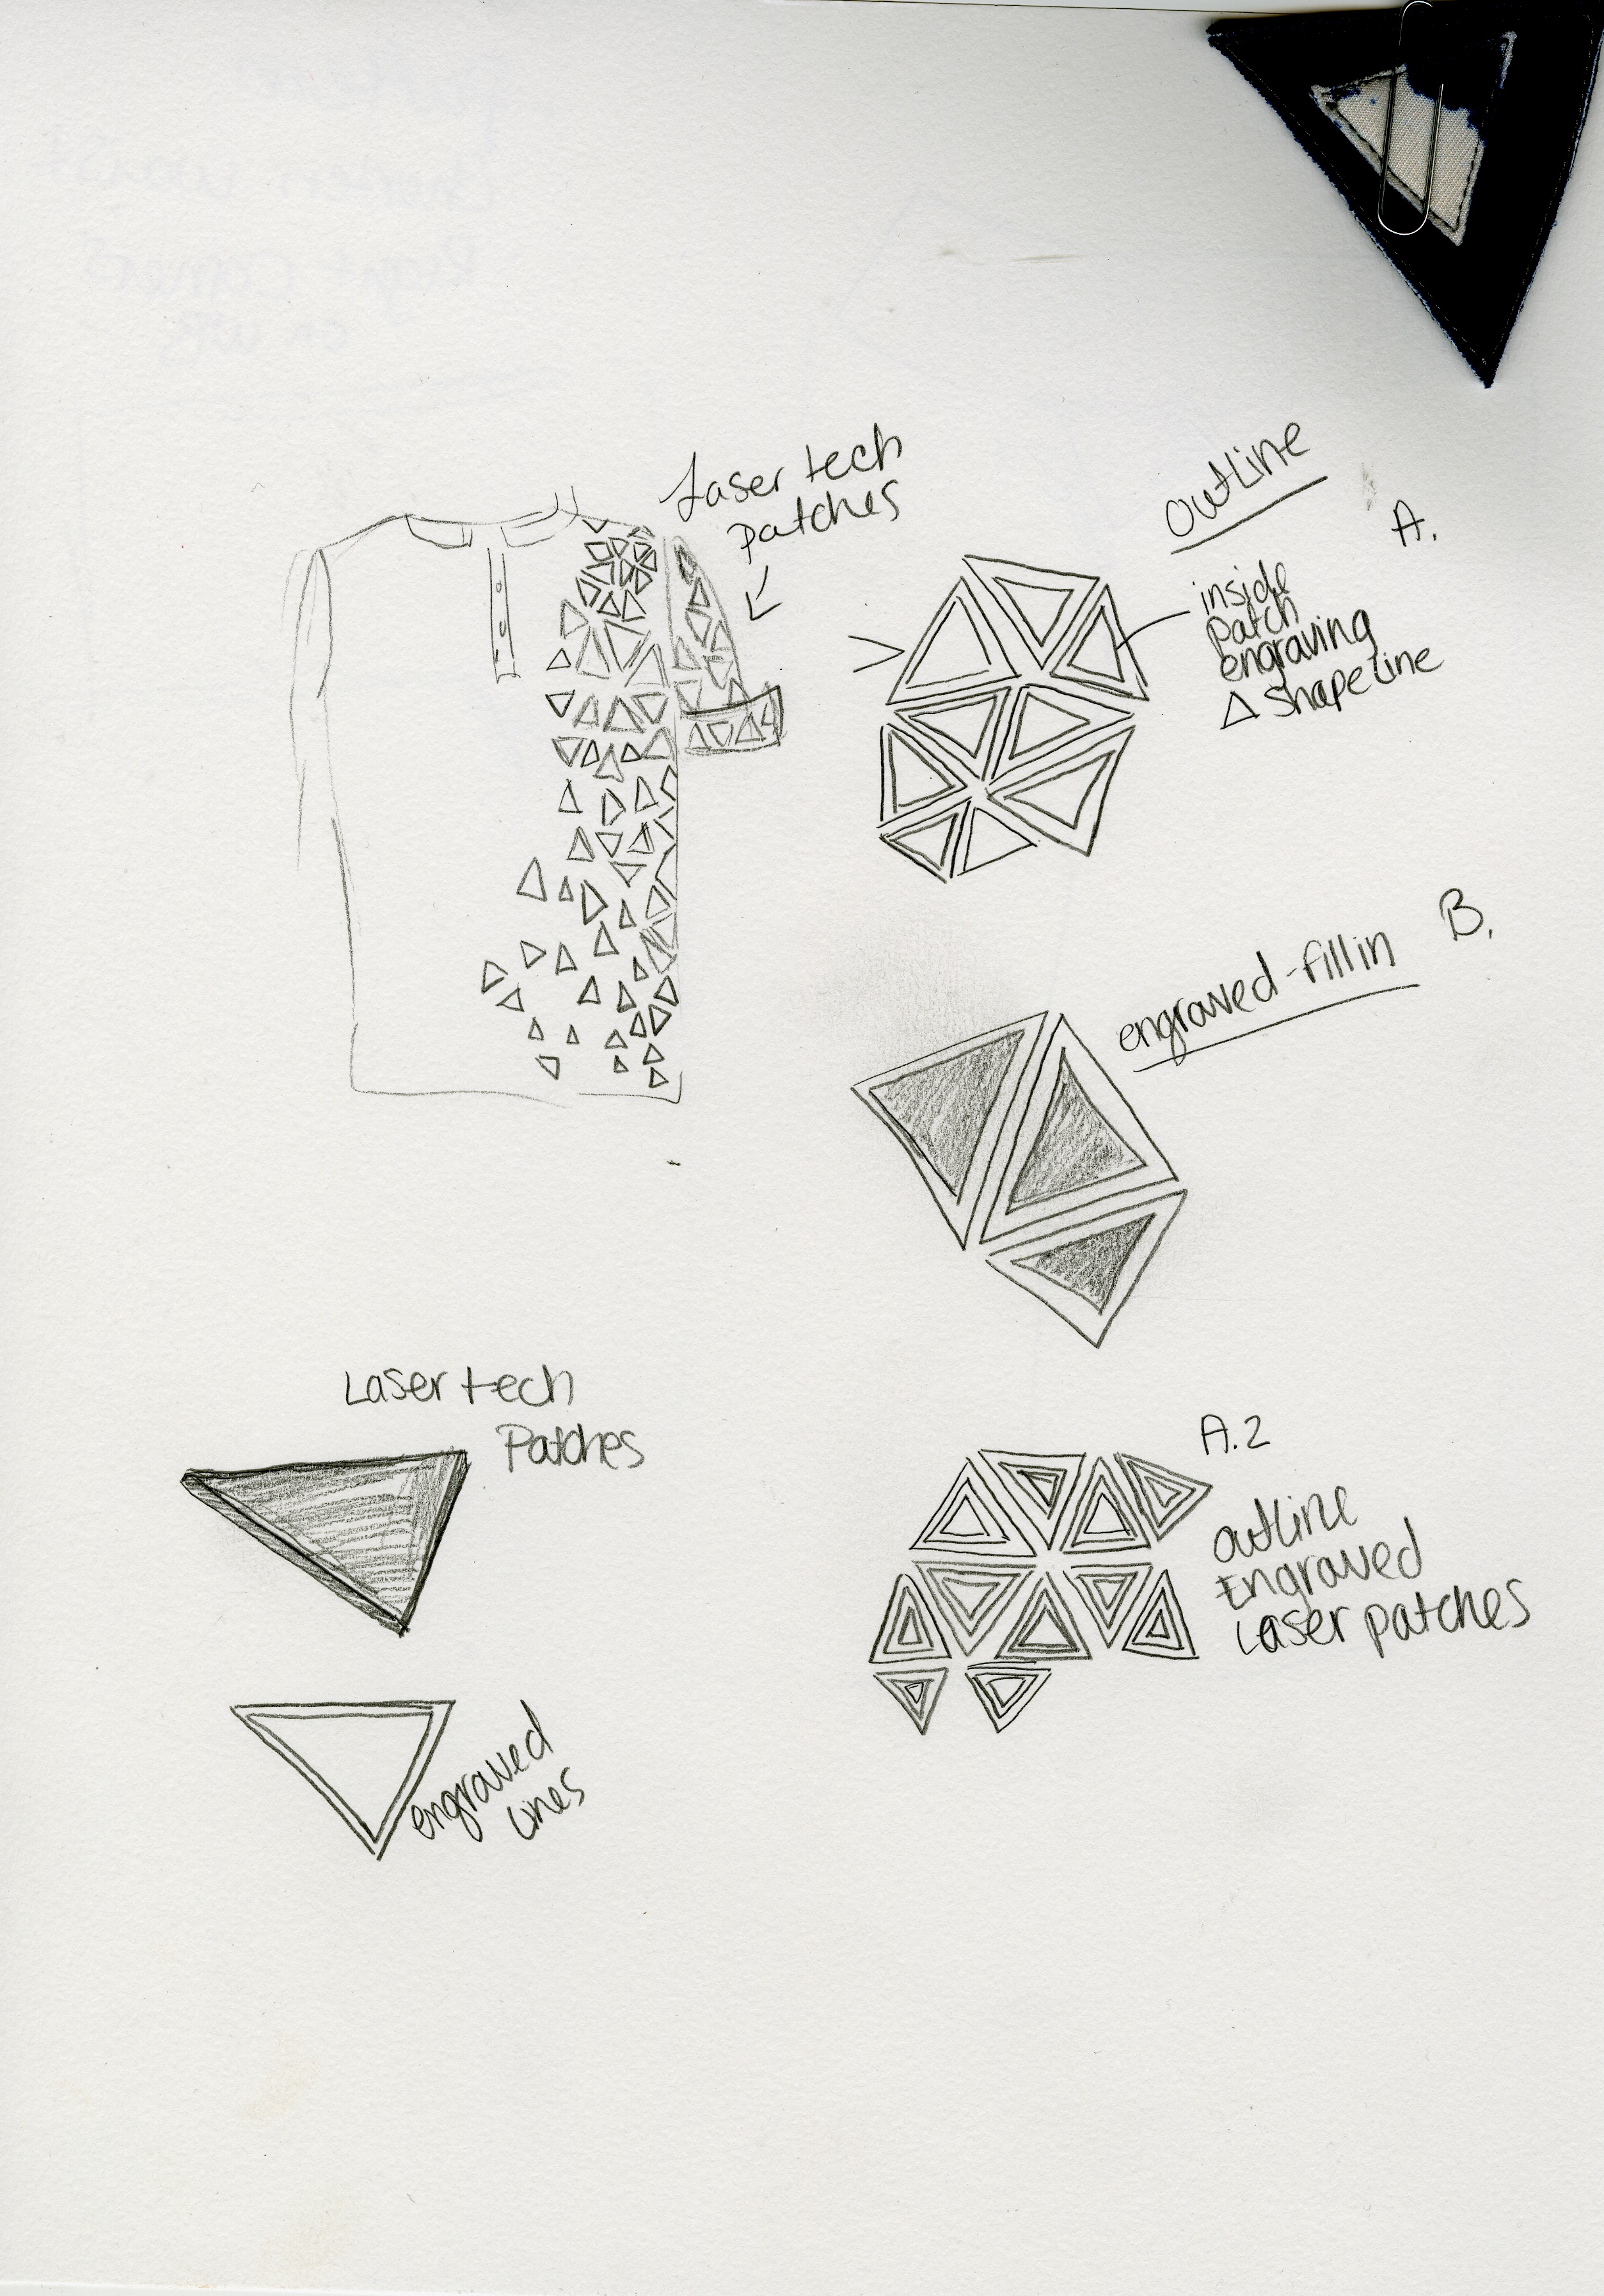 Laser tech
patches
outline
A.
inside
patch
engraving
△ shape line
engraved-fill in
B.
Laser tech
Patches
engraved
lines
A.2
outline
Engraved
Laser patches